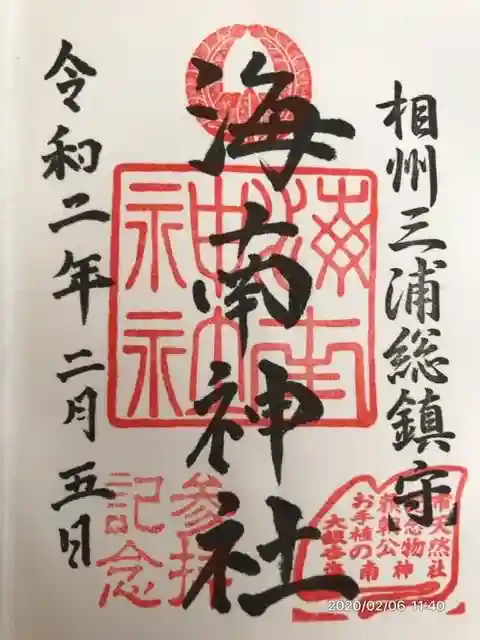 相州三浦総鎮守
海南神社
令和二年 二月 五日
海南
神社
参拝
記念
市天然
念物
頼朝公
お手植の
大銀杏
海南神社
2020/02/06 11:40